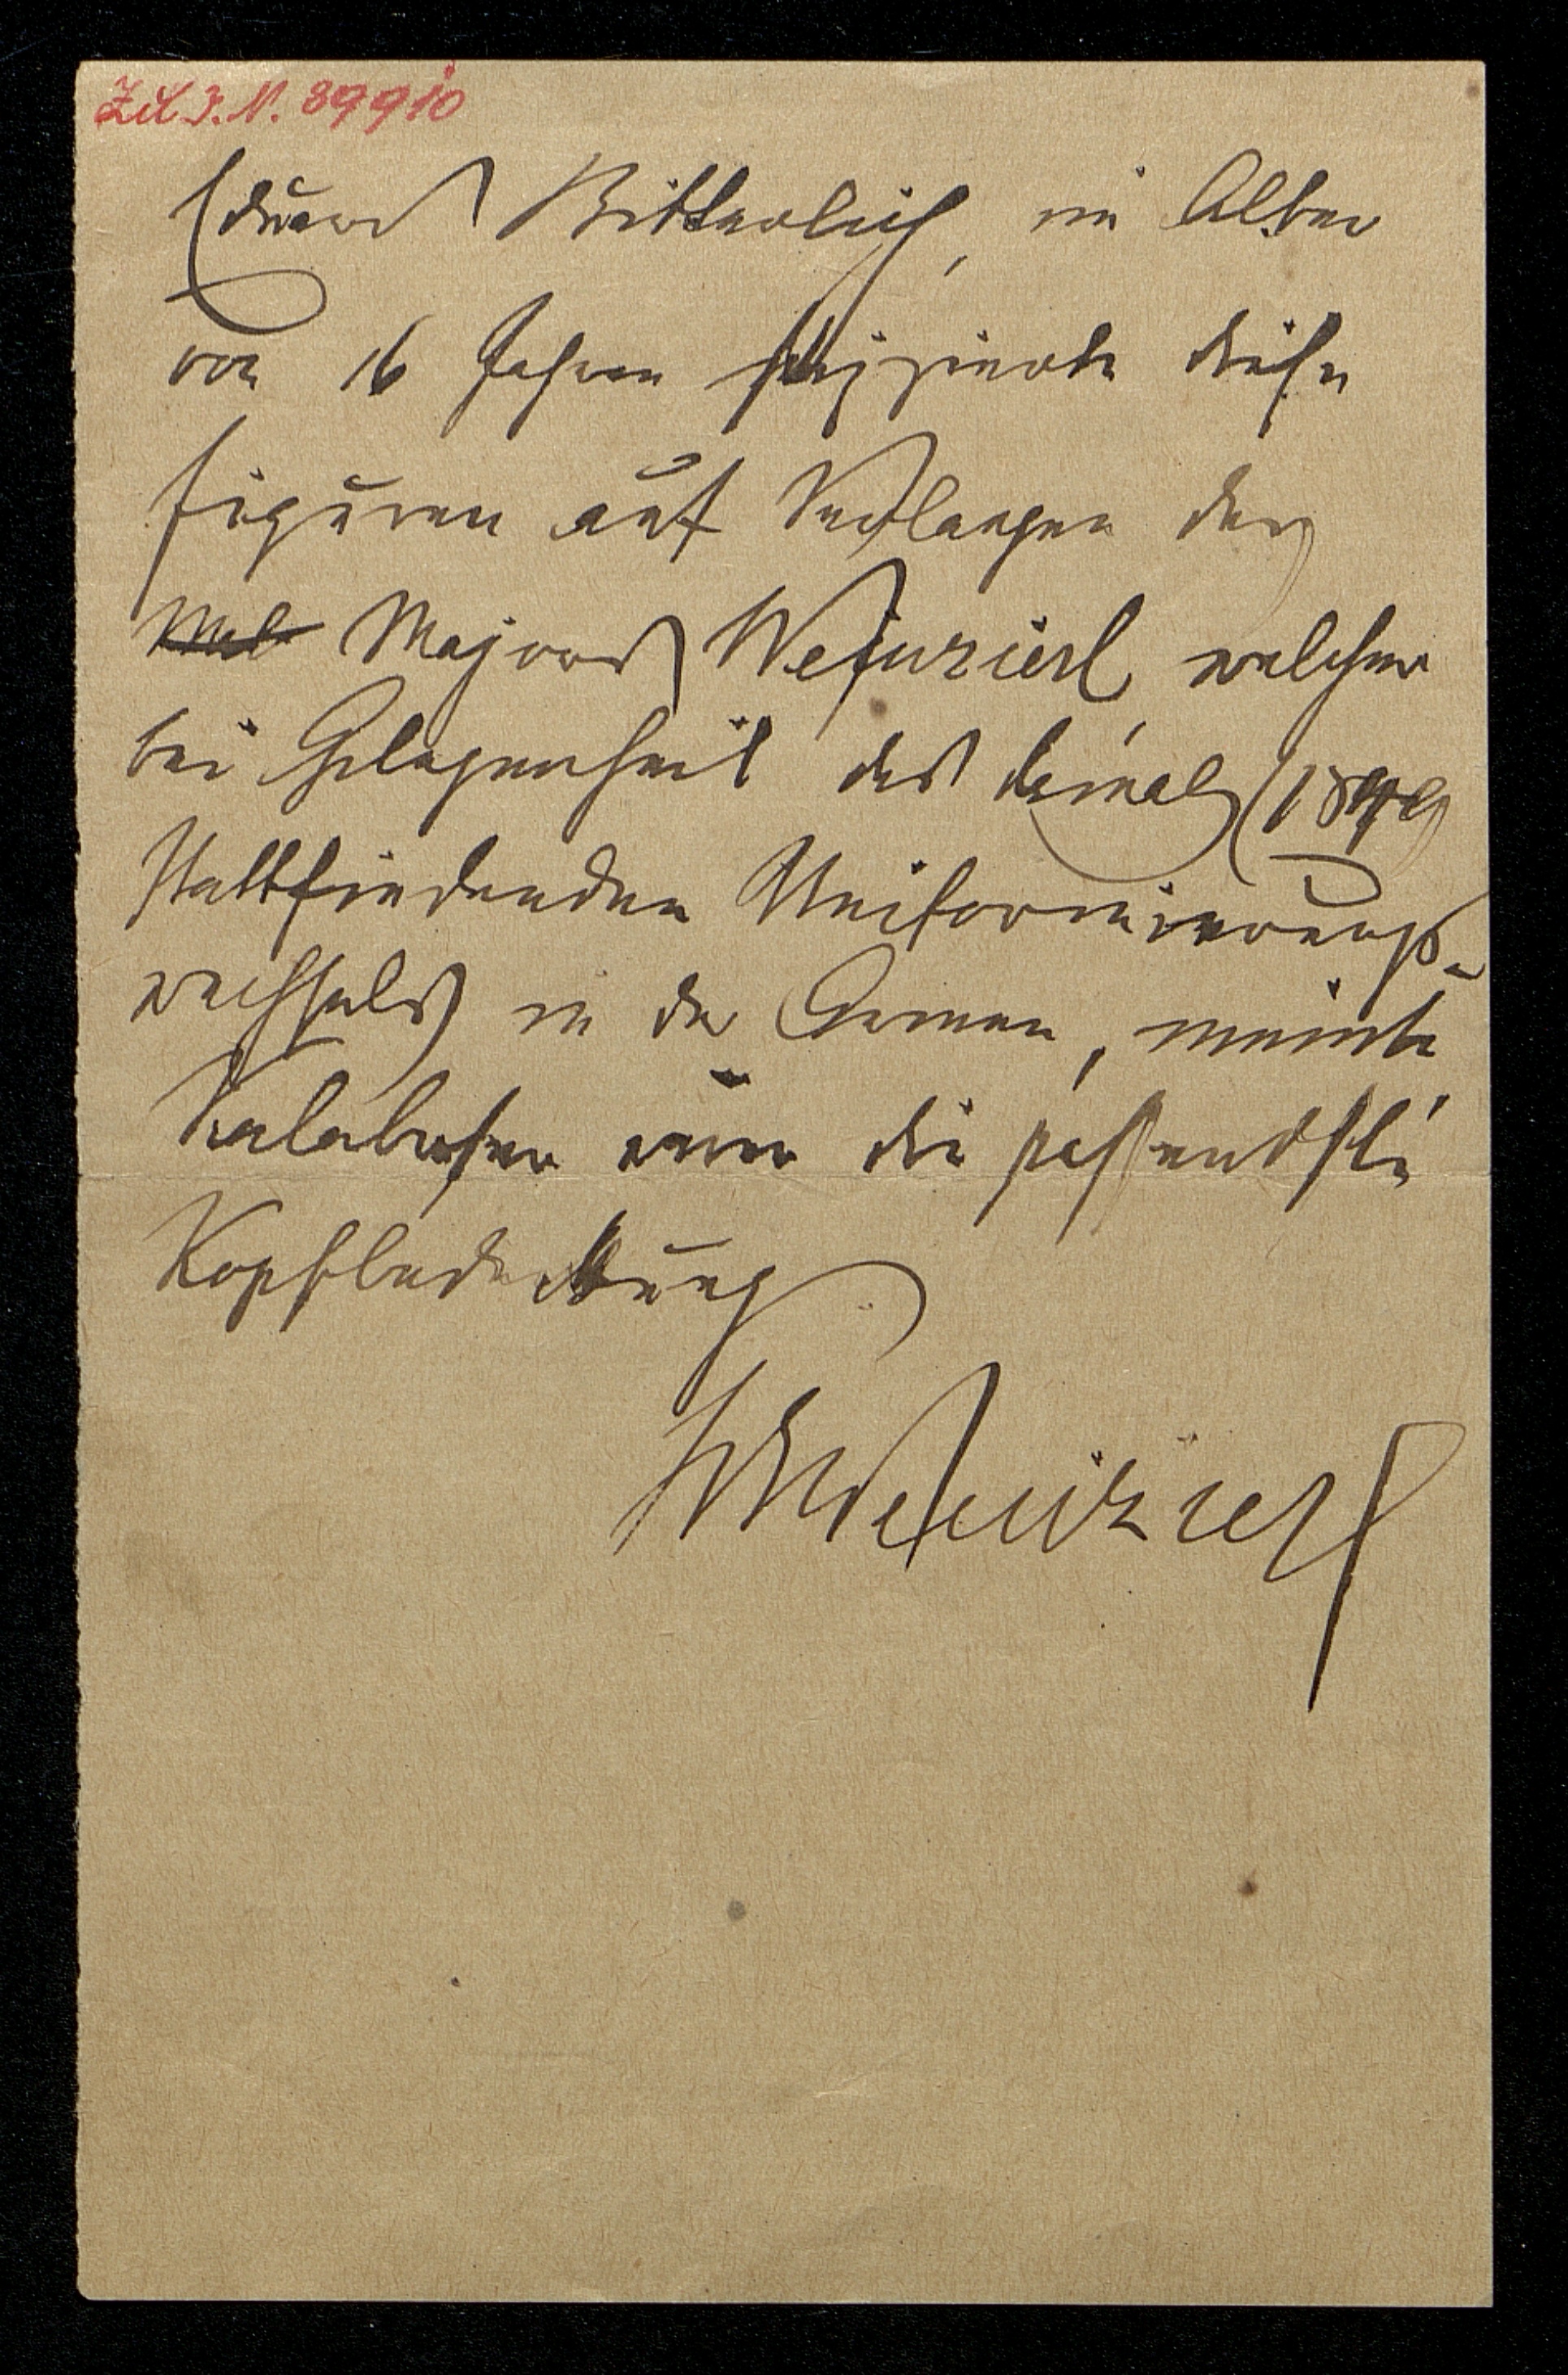 Zu J. N. 89910
Eduard Bitterlich, im Alter
von 16 Jahren skizzierte diese
Figuren auf Verlangen des
Majors Weinzierl, welcher
bei Gelegenheit des damals (1849)
stattfindenden Uniformierungs-
wechsels in der Armee, meinte
Kalabreser wäre die passendste
Kopfbedeckung
Weinzierl